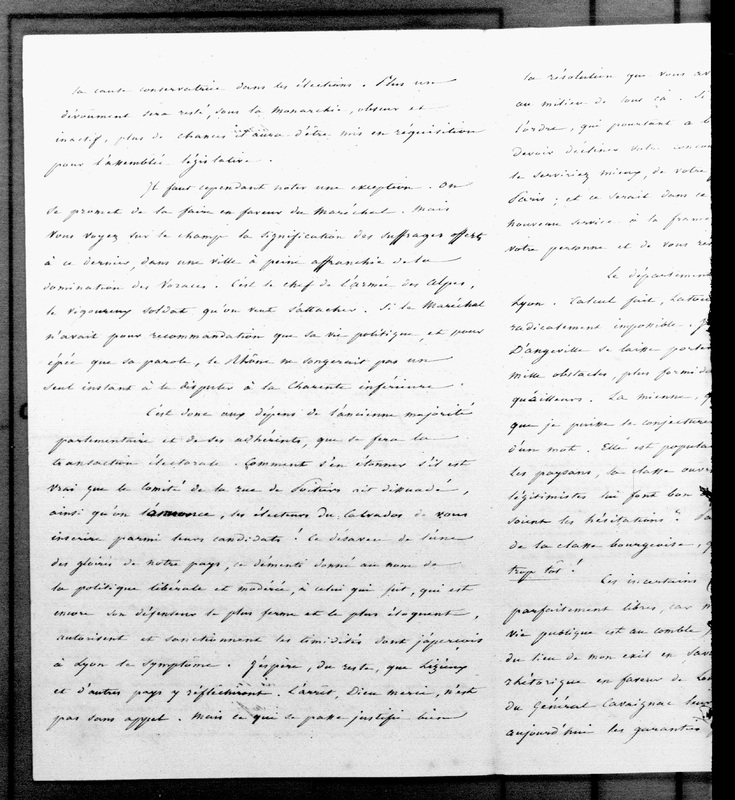 la cause conservatrice dans les élections. Plus un
dévoument sera resté, sous la Monarchie, obscur et
inactif, plus de chances il aura d'être mis en réquisition
pour l'assemblée législative.
Il faut cependant noter une exception. On
se promet de la faire en faveur du Maréchal. Mais
vous voyez sur le champ la signification des suffrages offerts
à ce dernier, dans une ville à peine affranchie de la
domination des Voraces. C'est le chef de l'armée des Alpes,
le vigoureux soldat qu'on veut s'attacher. Si le Maréchal
n'avait pour recommandation que sa vie politique, et pour
épée que sa parole, le Rhône ne songerait pas un
seul instant à le disputer à la Charente inférieure.
C'est donc aux dépens de l'ancienne majorité
parlementaire et de ses adhérents, que se fera la
transaction électorale. Comment s'en étonner s'il est
vrai que le comité de la rue de Poitiers ait dissuadé,
ainsi qu'on l'annonce, les électeurs du Calvados de vous
inscrire parmi leurs candidats! Ce désaveu de l'une
des gloires de notre pays, ce démenti donné au nom de
la politique libérale et modérée, à celui qui fut, qui est
encore son défenseur le plus ferme et le plus éloquent,
autorisent et sanctionnent les timidités dont j'aperçois
à Lyon le symptôme. J'espère, du reste, que Lizieux
et d'autres pays y réfléchiront. L'arrêt, Dieu merci, n'est
pas sans appel. Mais ce qui se passe justifie bien
la résolution que vous
au milieu de tous
l'ordre, qui pourtant a
devoir décliner votre
le serviriez mieux, de votre
Paris; et ce serait dans ce
nouveau service à la france
votre personne et de vous
Le département
Lyon. Calcul fait,
radicalement impossible.
D'angeville se laisse
mille obstacles, plus
qu'ailleurs. La mienne,
que je puisse le conjecturer
d'un mot. Elle est
Les paysans, la classe
légitimistes lui font bon
soient les hésitations?
de la classe bourgeoise,
trop tôt!
Ces incertains
parfaitement libres, car
vie publique est au comble
du lieu de mon exil en
rhétorique en faveur de
du Général Cavaignac
aujourd'hui les garanties